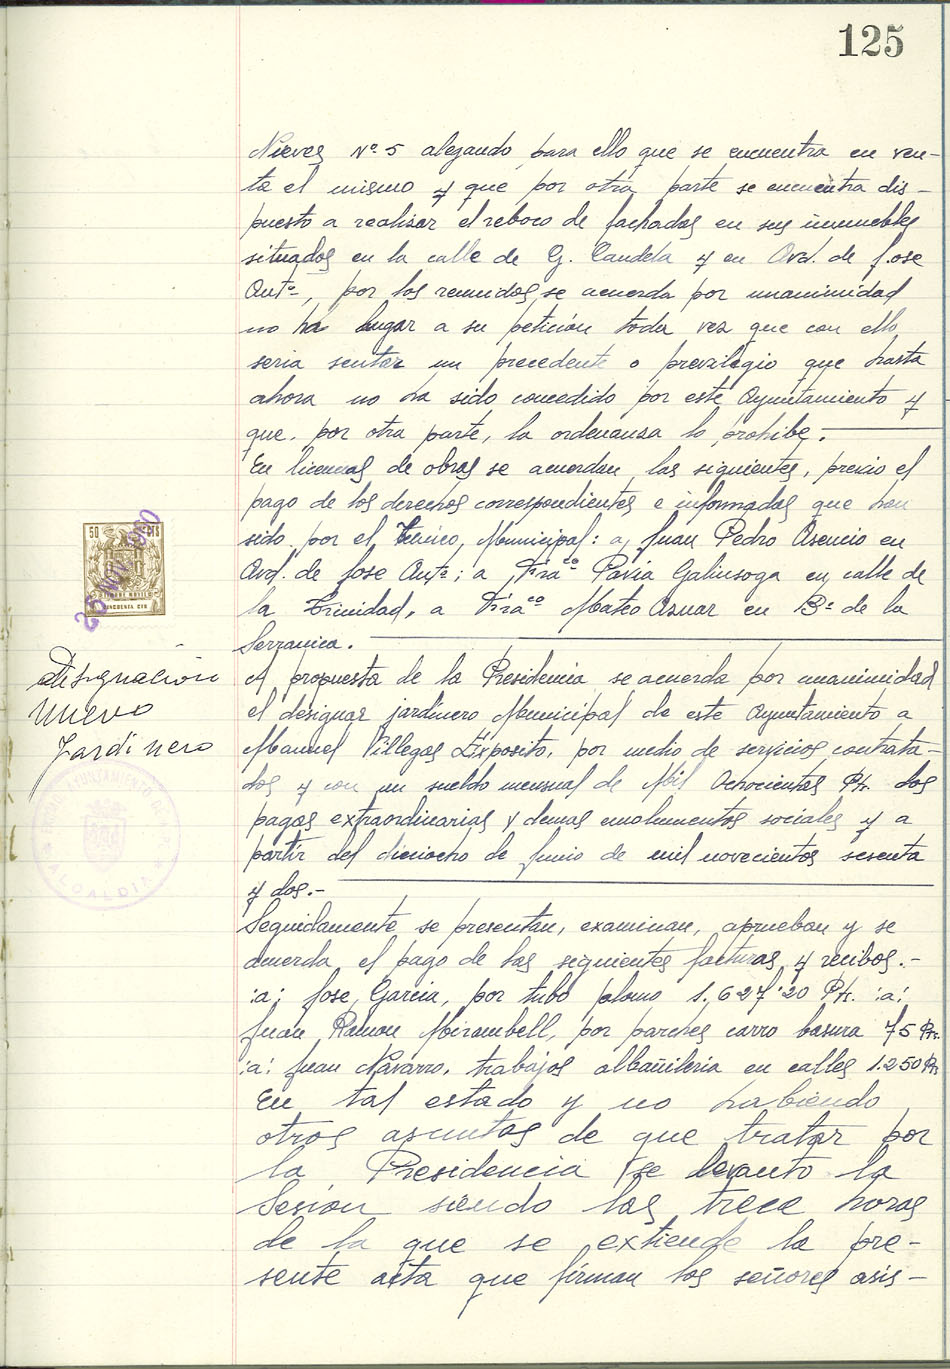 125
Nieves Nº 5 alegando para ello que se encuentra en ven-
ta el mismo y que por otra parte se encuentra dis-
puesto a realizar el reboco de fachadas en sus inmuebles
situados en la calle de G. Candela y en Avd. de Jose
Antº, por los reunidos se acuerda por unanimidad
no ha lugar a su petición toda vez que con ello
seria sentar un precedente o previlegio que hasta
ahora no ha sido concedido por este Ayuntamiento y
que. por otra parte, la ordenanza lo prohibe.
En licencias de obras se acuerdan las siguientes, previo el
pago de los derechos correspondientes e informadas que han
sido por el Tecnico Municipal: a, Juan Pedro Asencio en
Avd. de Jose Antº; a Fraco Pavia Galinsoga en calle de
la Trinidad, a Fraco Mateo Aznar en Bº de la
Serranica.
50 CTS
25 NOV 1960
TIMBRE MOVIL
CINCUENTA CTS
designación
nuevo
Jardinero
AYUNTAMIENTO DE
ALCALDIA
A propuesta de la Presidencia se acuerda por unanimidad
el designar jardinero Municipal de este Ayuntamiento a
Manuel Villegas Exposito, por medio de servicios contrata-
dos y con un sueldo mensual de Mil Ochocientas Pts. dos
pagas extraordinarias y demas emolumentos sociales y a
partir del dieciocho de Junio de mil novecientos sesenta
y dos.-
Seguidamente se presentan, examinan, aprueban y se
acuerda el pago de las siguientes facturas y recibos.-
:a: Jose Garcia, por tubo plomo 1.627'20 Pts. :a:
Juan Ramon Mirambell, por parches carro basura 75 Pts.
:a: Juan Navarro, trabajos albañileria en calles 1.250 Pts
En tal estado y no habiendo
otros asuntos de que tratar por
la Presidencia se levanto la
Sesion siendo las trece horas
de la que se extiende la pre-
sente acta que firman los señores asis-